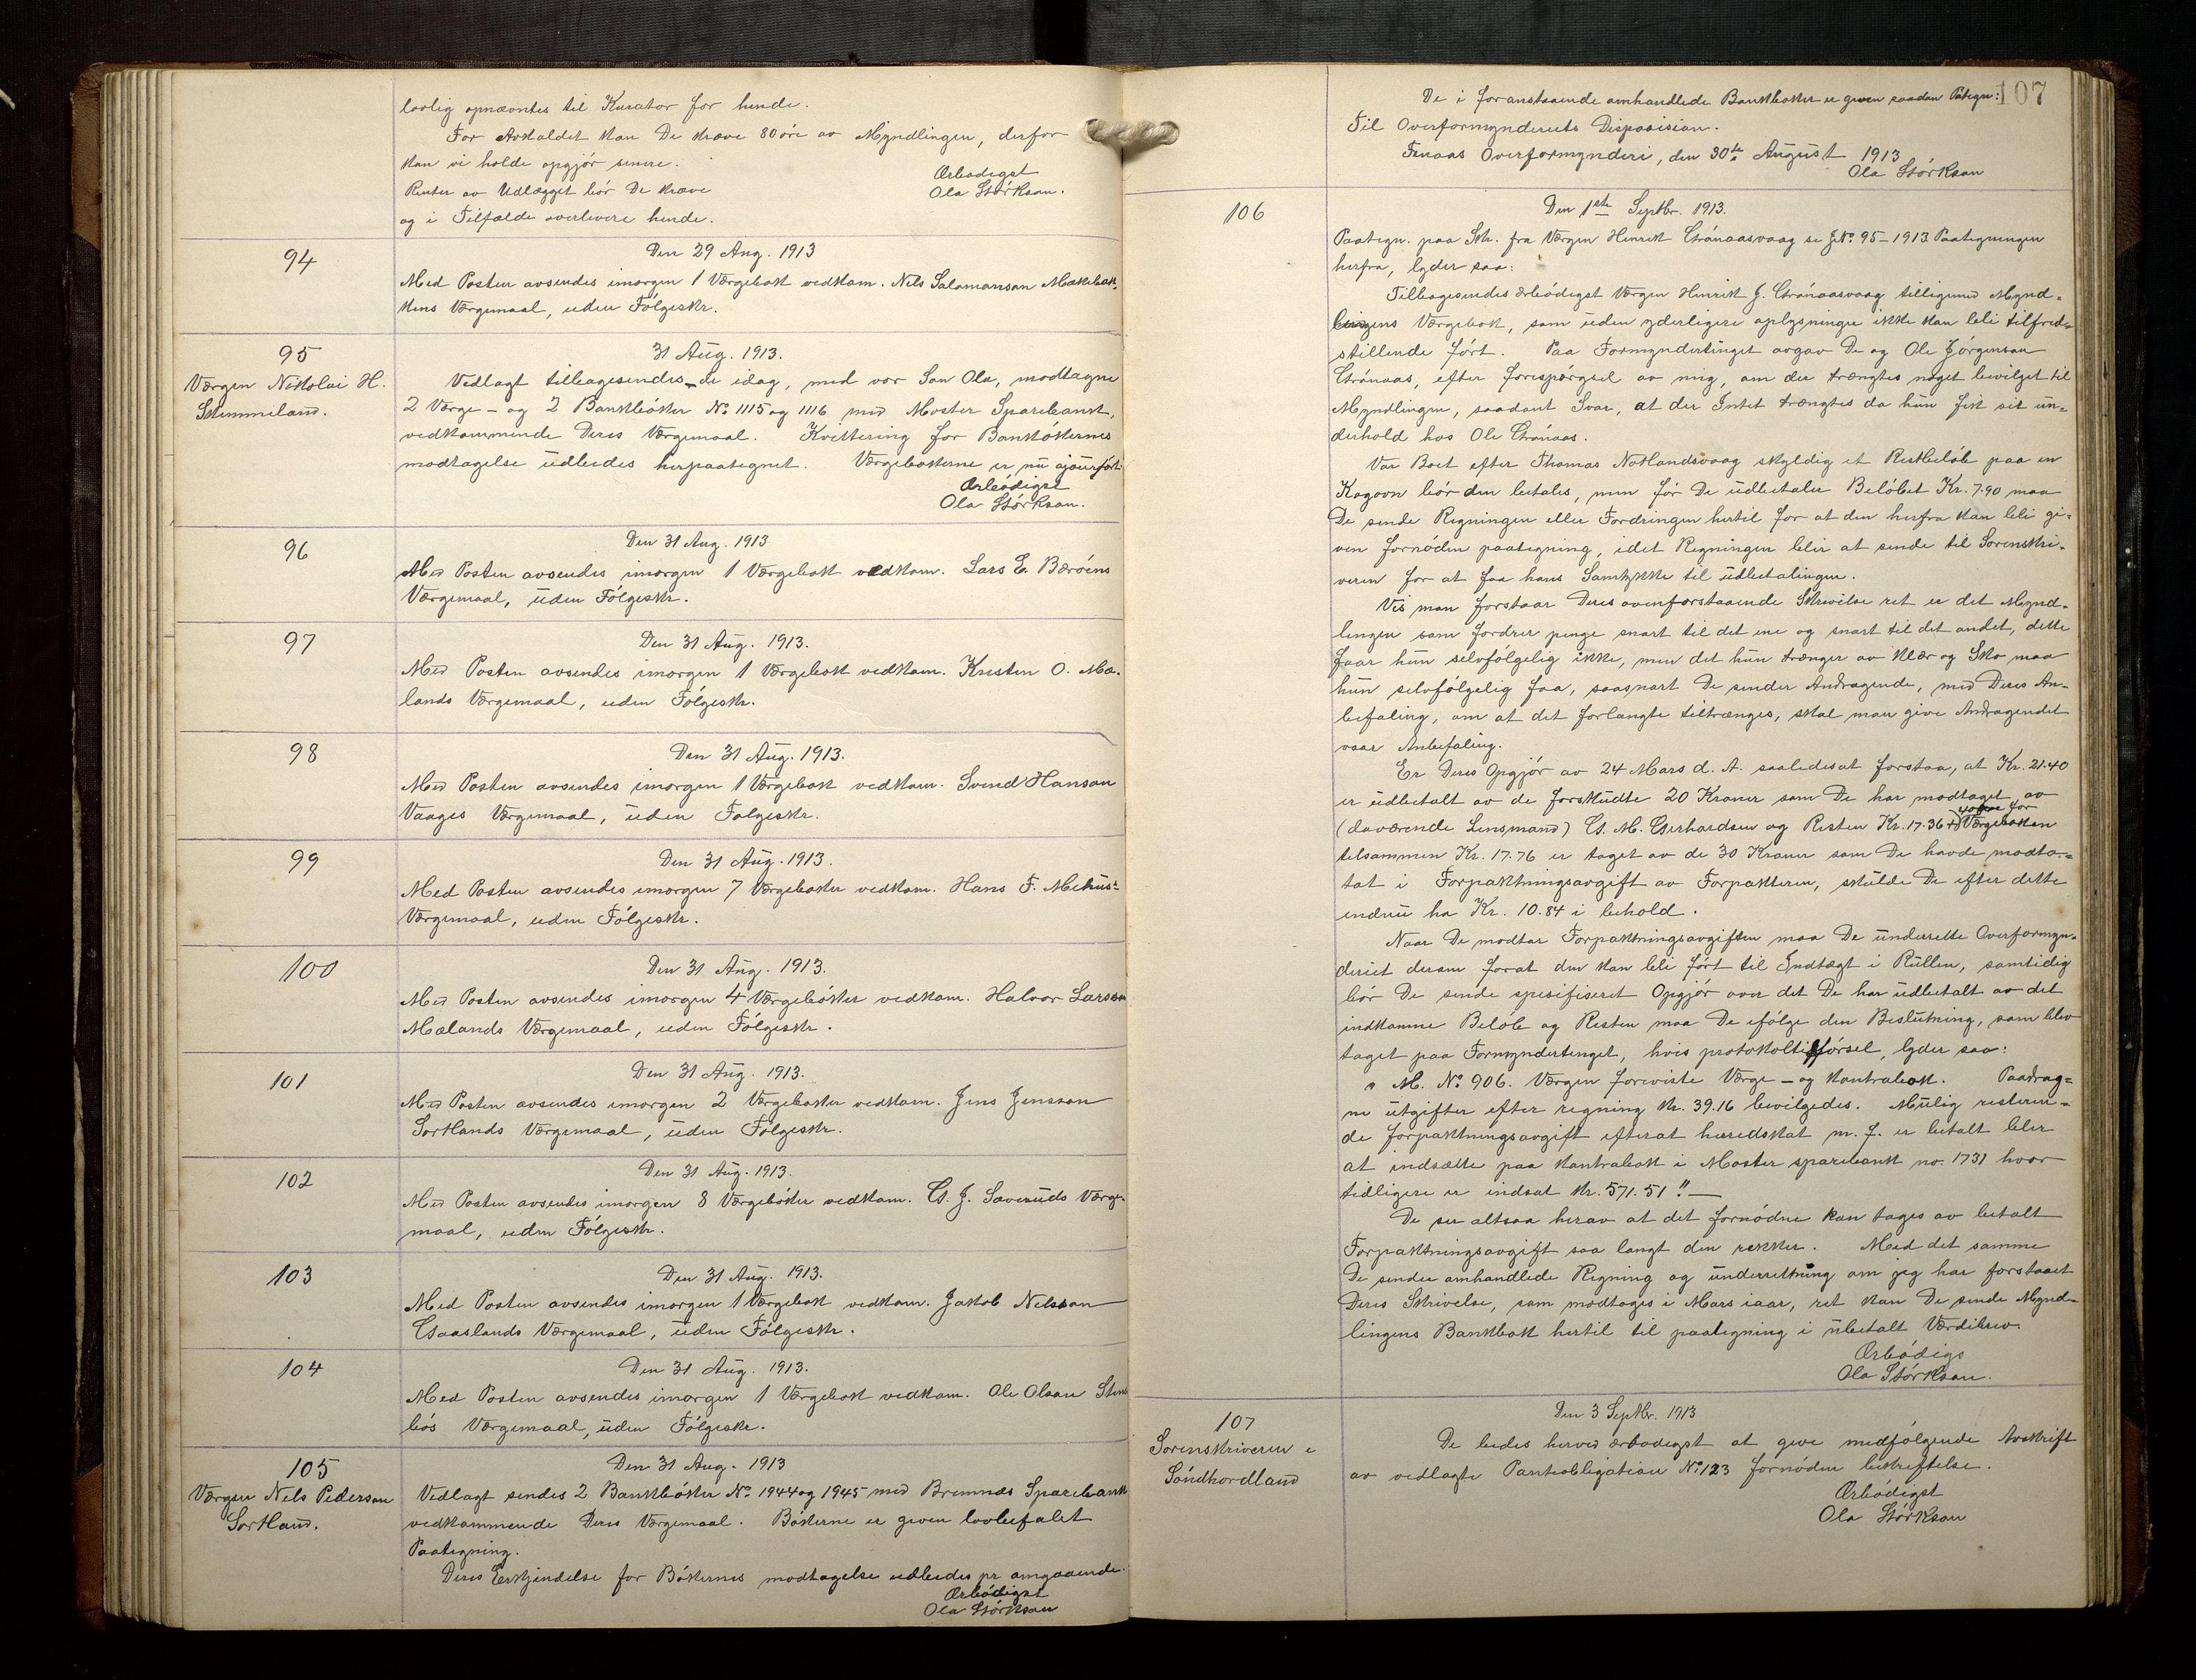 lovlig opnævntes til Kurator for hende.
For Avkaldet kan De kræve 80 øre av Myndlingen, derfor
kan vi holde opgjør senere.
Ærbødigst
Renter av Udlægget bør De kræve
Ola Størkson.
og i Tilfælde overlevere hende.
94
Den 29 Aug. 1913
Med Posten avsendes imorgen 1 Værgebok vedkom. Nels Salamonson Mækebak-
kens Værgemaal, uden Følgeskr.
95
Værgen Nikolai H.
Skimmeland.
31 Aug. 1913.
Vedlagt tilbagesendes de idag, med vor Søn Ola, modtagne
2 Værge- og 2 Bankbøker No. 1115 og 1116 med Moster Sparebank,
vedkommende Deres Værgemaal. Kvittering for Bankbøkernes
modtagelse udbedes herpaategnet. Værgebøkerne er nu ajourført.
Ærbødigst
Ola Størkson.
96
Den 31 Aug. 1913
Med Posten avsendes imorgen 1 Værgebok vedkom. Lars E. Bærøens
Værgemaal, uden Følgeskr.
97
Den 31 Aug. 1913.
Med Posten avsendes imorgen 1 Værgebok vedkom. Kristen O. Mæ-
lands Værgemaal, uden Følgeskr.
98
Den 31 Aug. 1913.
Med Posten avsendes imorgen 1 Værgebok vedkom. Svend Hanson
Vaages Værgemaal, uden Følgeskr.
99
Den 31 Aug. 1913.
Med Posten avsendes imorgen 7 Værgebøker vedkom. Hans F. Mehus'
Værgemaal, uden Følgeskr.
100
Den 31 Aug. 1913.
Med Posten avsendes imorgen 4 Værgebøker vedkom. Halvor Larsson
Mælands Værgemaal, uden Følgeskr.
101
Den 31 Aug. 1913.
Med Posten avsendes imorgen 2 Værgebøker vedkom. Jens Jensson
Sortlands Værgemaal, uden Følgeskr.
102
Den 31 Aug. 1913.
Med Posten avsendes imorgen 8 Værgebøker vedkom. G. J. Saveruds Værge-
maal, uden Følgeskr.
103
Den 31 Aug. 1913.
Med Posten avsendes imorgen 1 Værgebok vedkom. Jakob Nelsson
Gaaslands Værgemaal, uden Følgeskr.
104
Den 31 Aug. 1913.
Med Posten avsendes imorgen 1 Værgebok vedkom. Ole Olson Stens-
bøs Værgemaal, uden Følgeskr.
105
Værgen Nels Pederson
Sortland.
Den 31 Aug. 1913
Vedlagt sendes 2 Bankbøker No. 1944 og 1945 med Bremnes Sparebank
vedkommende Deres Værgemaal. Bøkerne er given lovbefalet
Paategning.
Deres Erkjendelse for Bøkernes modtagelse udbedes pr. omgaaende.
Ærbødigst
Ola Størkson
107
De i foranstaaende omhandlede Bankbøker er given saadan Pategn:
Til Overformynderiets Disposision.
Finaas Overformynderi, den 30te August 1913
Ola Størkson
106
Den 1ste Septbr. 1913.
Paategn. paa Skr. fra Værgen Henrik Grønaasvaag se J.No. 95-1913. Paategningen
herfra, lyder saa:
Tilbagesendes ærbødigst Værgen Henrik J. Grønaasvaag tilligemed Mynd-
lingens Værgebok, som uden yderligere oplysninger ikke kan bli tilfred-
stillende ført. Paa Formyndertinget avgav De og Ole Jørgenson
Grønaas, efter forespørgsel av mig, om der trængtes noget bevilget til
Myndlingen, saadant Svar, at der Intet trængtes da hun fik sit un-
derhold hos Ole Grønaas.
Var Boet efter Thomas Notlandsvaag skyldig et Restbeløb paa en
Kogovn bør den betales, men før De udbetaler Beløbet Kr. 7.90 maa
De sende Regningen eller Fordringen hertil for at den herfra kan bli gi-
ven fornøden paategning, idet Regningen blir at sende til Sorenskri-
veren for at faa hans Samtykke til udbetalingen.
Vis man forstaar Deres ovenforstaaende Skrivelse ret er det Mynd-
lingen som fordrer penge snart til det ene og snart til det andet, dette
faar hun selvfølgelig ikke, men det hun trænger av Klær og Sko maa
hun selvfølgelig faa, saasnart De sender Andragende, med Deres An-
befaling, om at det forlangte tiltrænges, skal man give Andragendet
vaar Anbefaling.
Er Deres Opgjør av 24 Mars d. A. saaledes at forstaa, at Kr. 21.40
er udbetalt av de forskudte 20 Kroner som De har modtaget av
40 øre for
(daværende Lensmand) G. M. Gerhardsen og Resten Kr. 17.36 + Værgeboken
tilsammen Kr. 17.76 er taget av de 30 Kroner som De havde modta-
tat i Forpaktningsavgift av Forpakteren, skulde De efter dette
endnu ha Kr. 10.84 i behold.
Naar De modtar Forpaktningsavgiften maa De underrette Overformyn-
deriet derom forat den kan bli ført til Indtægt i Rullen, samtidig
bør De sende spesifiseret Opgjør over det De har udbetalt av det
indkomne Beløb og Resten maa De ifølge den Beslutning, som blev
taget paa Formyndertinget, hvis protokoltilførsel, lyder saa:
" M. No. 906. Værgen foreviste Værge- og kontrabok. Paadrag-
ne utgifter efter regning kr. 39.16 bevilgedes. Mulig resteren-
de forpaktningsavgift efterat herredskat m. f. er betalt blir
at indsætte paa kontrabok i Moster sparebank no. 1731 hvor
tidligere er indsat kr. 571.51!!
De ser altsaa herav at det fornødne kan tages av betalt
Forpaktningsavgift saa langt den rekker. Med det samme
De sender omhandlede Regning og underretning om jeg har forstaaet
Deres Skrivelse, som modtoges i Mars iaar, ret kan De sende Mynd-
lingens Bankbok hertil til paategning i ubetalt Værdibrev.
Ærbødigs
Ola Størkson.
107
Sorenskriveren i
Søndhordland
Den 3 Septbr. 1913
De bedes herved ærbødigst at give medfølgende Avskrift
av vedlagte Pantobligation No. 123 fornøden bekreftelse.
Ærbødigst
Ola Størkson